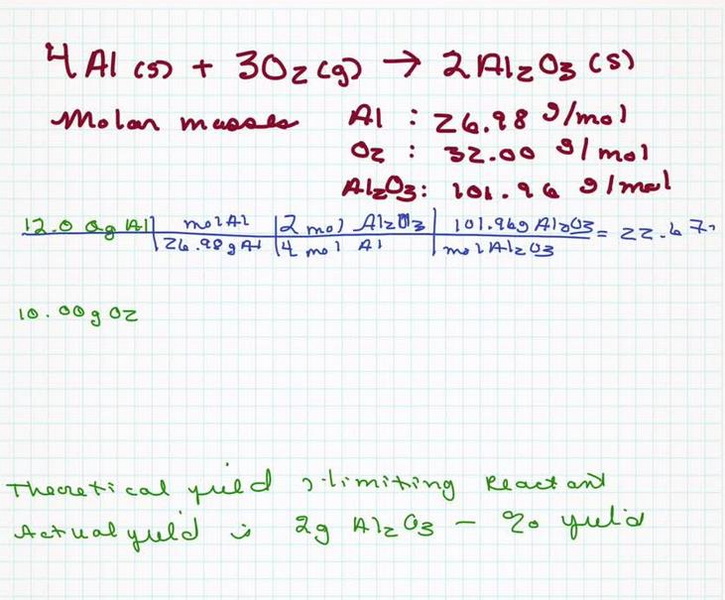 4Al(s) + 3O2(g) → 2Al2O3(s)
Molar masses Al : 26.98 g/mol
O2 : 32.00 g/mol
Al2O3: 101.96 g/mol
12.00g Al | mol Al | 2 mol Al2O3 | 101.96g Al2O3 = 22.67
26.98 g Al | 4 mol Al | mol Al2O3
10.00g O2
Theoretical yield limiting Reactant
Actual yield is 2g Al2O3 - % yield